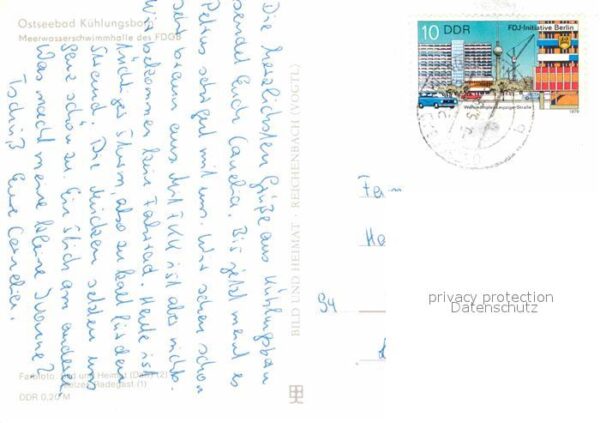 Ostseebad Kühlungsborn
Meerwasserschwimmhalle des FDGB
Die herzlichsten Grüße aus Kühlungsborn
sendet Euch Cornelia. Bis jetzt meint es
Petrus sehr gut mit uns. Wir sehen schon
sehr braun aus. Mit FKK ist aber nichts.
Wir bekommen kein Fahrrad. Heute ist
Sturm, also zu kalt für den
Strand. Die Mücken setzen uns
ganz schön zu. Ein Stich am anderen.
Was macht meine kleine Yvonne?
Tschüß Eure Cornelia.
Farbfoto: Bild und Heimat (2)
Radegast (1)
DDR 0,20 M
BILD UND HEIMAT · REICHENBACH (VOGTL.)
10 DDR
FDJ-Initiative Berlin
Wohnkomplex Leipziger Straße
1979
Fam
94
privacy protection
Datenschutz